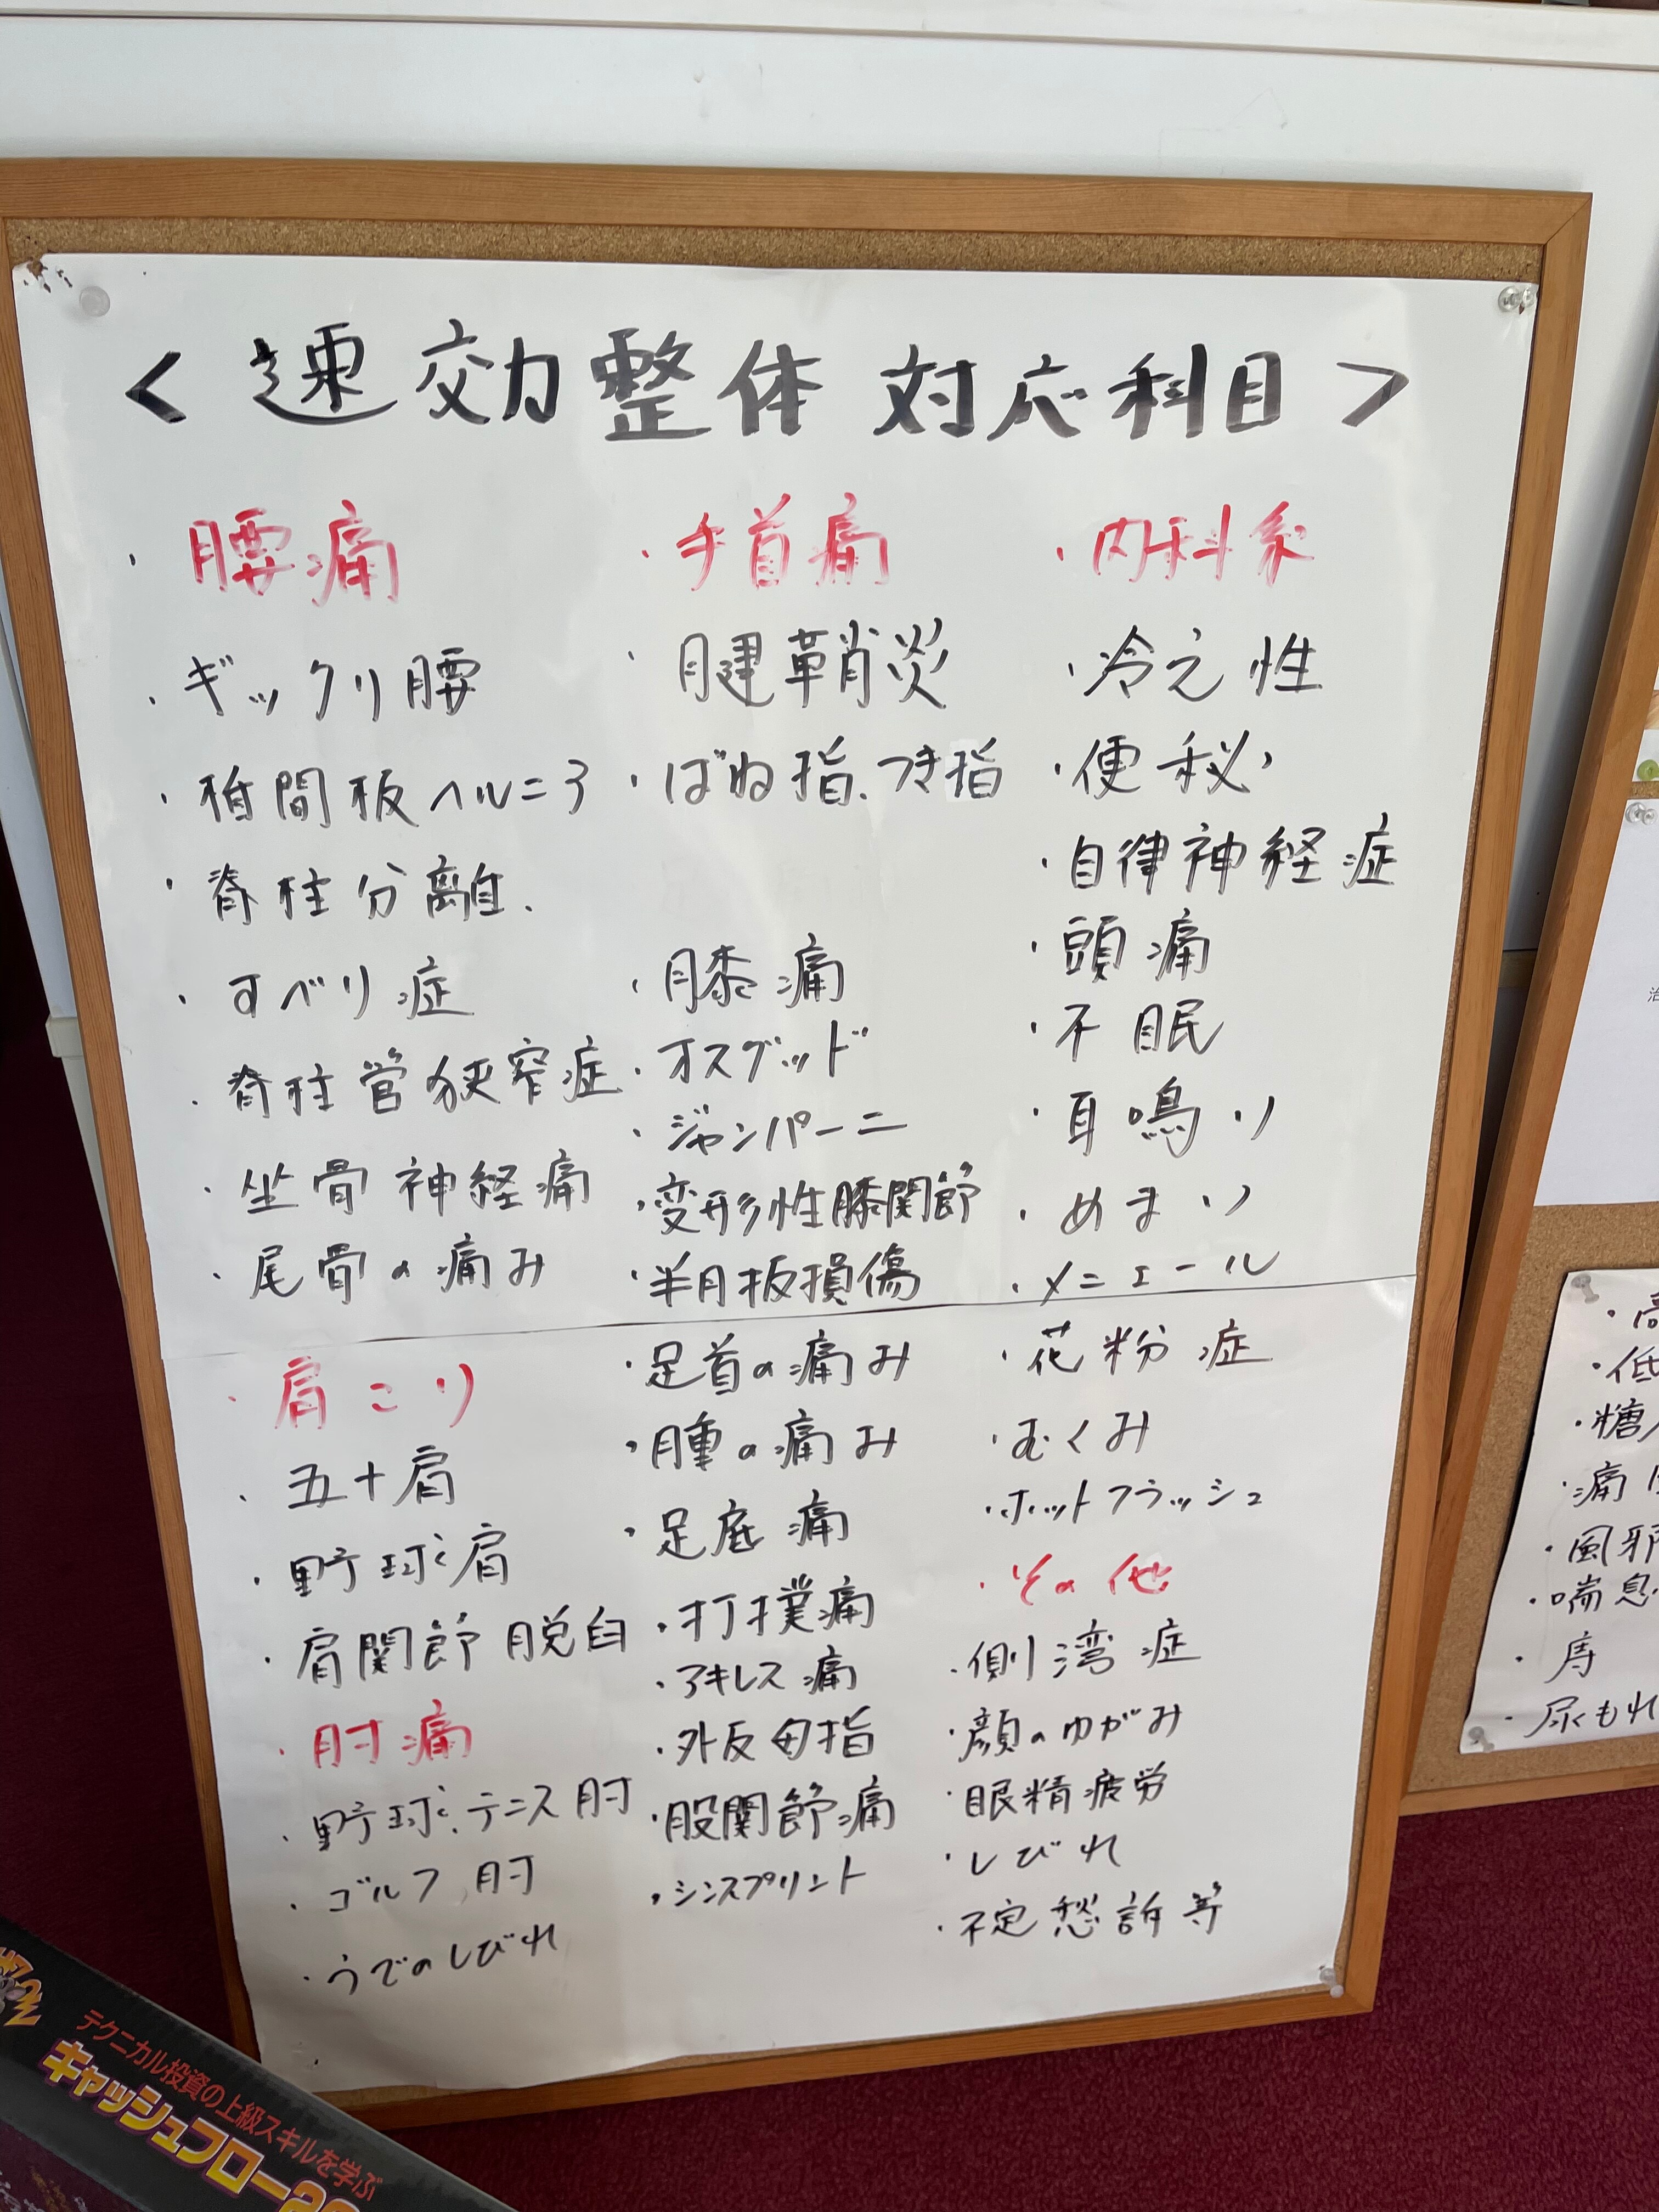 ＜速効整体 対応科目＞
・腰痛
・ギックリ腰
・椎間板ヘルニア
・脊柱分離.
・すべり症
・脊柱管狭窄症
・坐骨神経痛
・尾骨の痛み
・肩こり
・五十肩
・野球肩
・肩関節脱臼
・肘痛
・野球、テニス肘
・ゴルフ肘
・うでのしびれ
・手首痛
・腱鞘炎
・ばね指、つき指
・膝痛
・オスグッド
・ジャンパーニ
・変形性膝関節
・半月板損傷
・足首の痛み
・腫の痛み
・足底痛
・打撲痛
・アキレス痛
・外反母指
・股関節痛
・シンスプリント
・内科系
・冷え性
・便秘
・自律神経症
・頭痛
・不眠
・耳鳴り
・めまい
・メニエール
・花粉症
・むくみ
・ホットフラッシュ
・その他
・側湾症
・顔のゆがみ
・眼精疲労
・しびれ
・不定愁訴等
治
・高
・低
・糖
・痛
・風邪
・喘息
・尿もれ
テクニカル投資の上級スキルを学ぶ
キャッシュフロー20